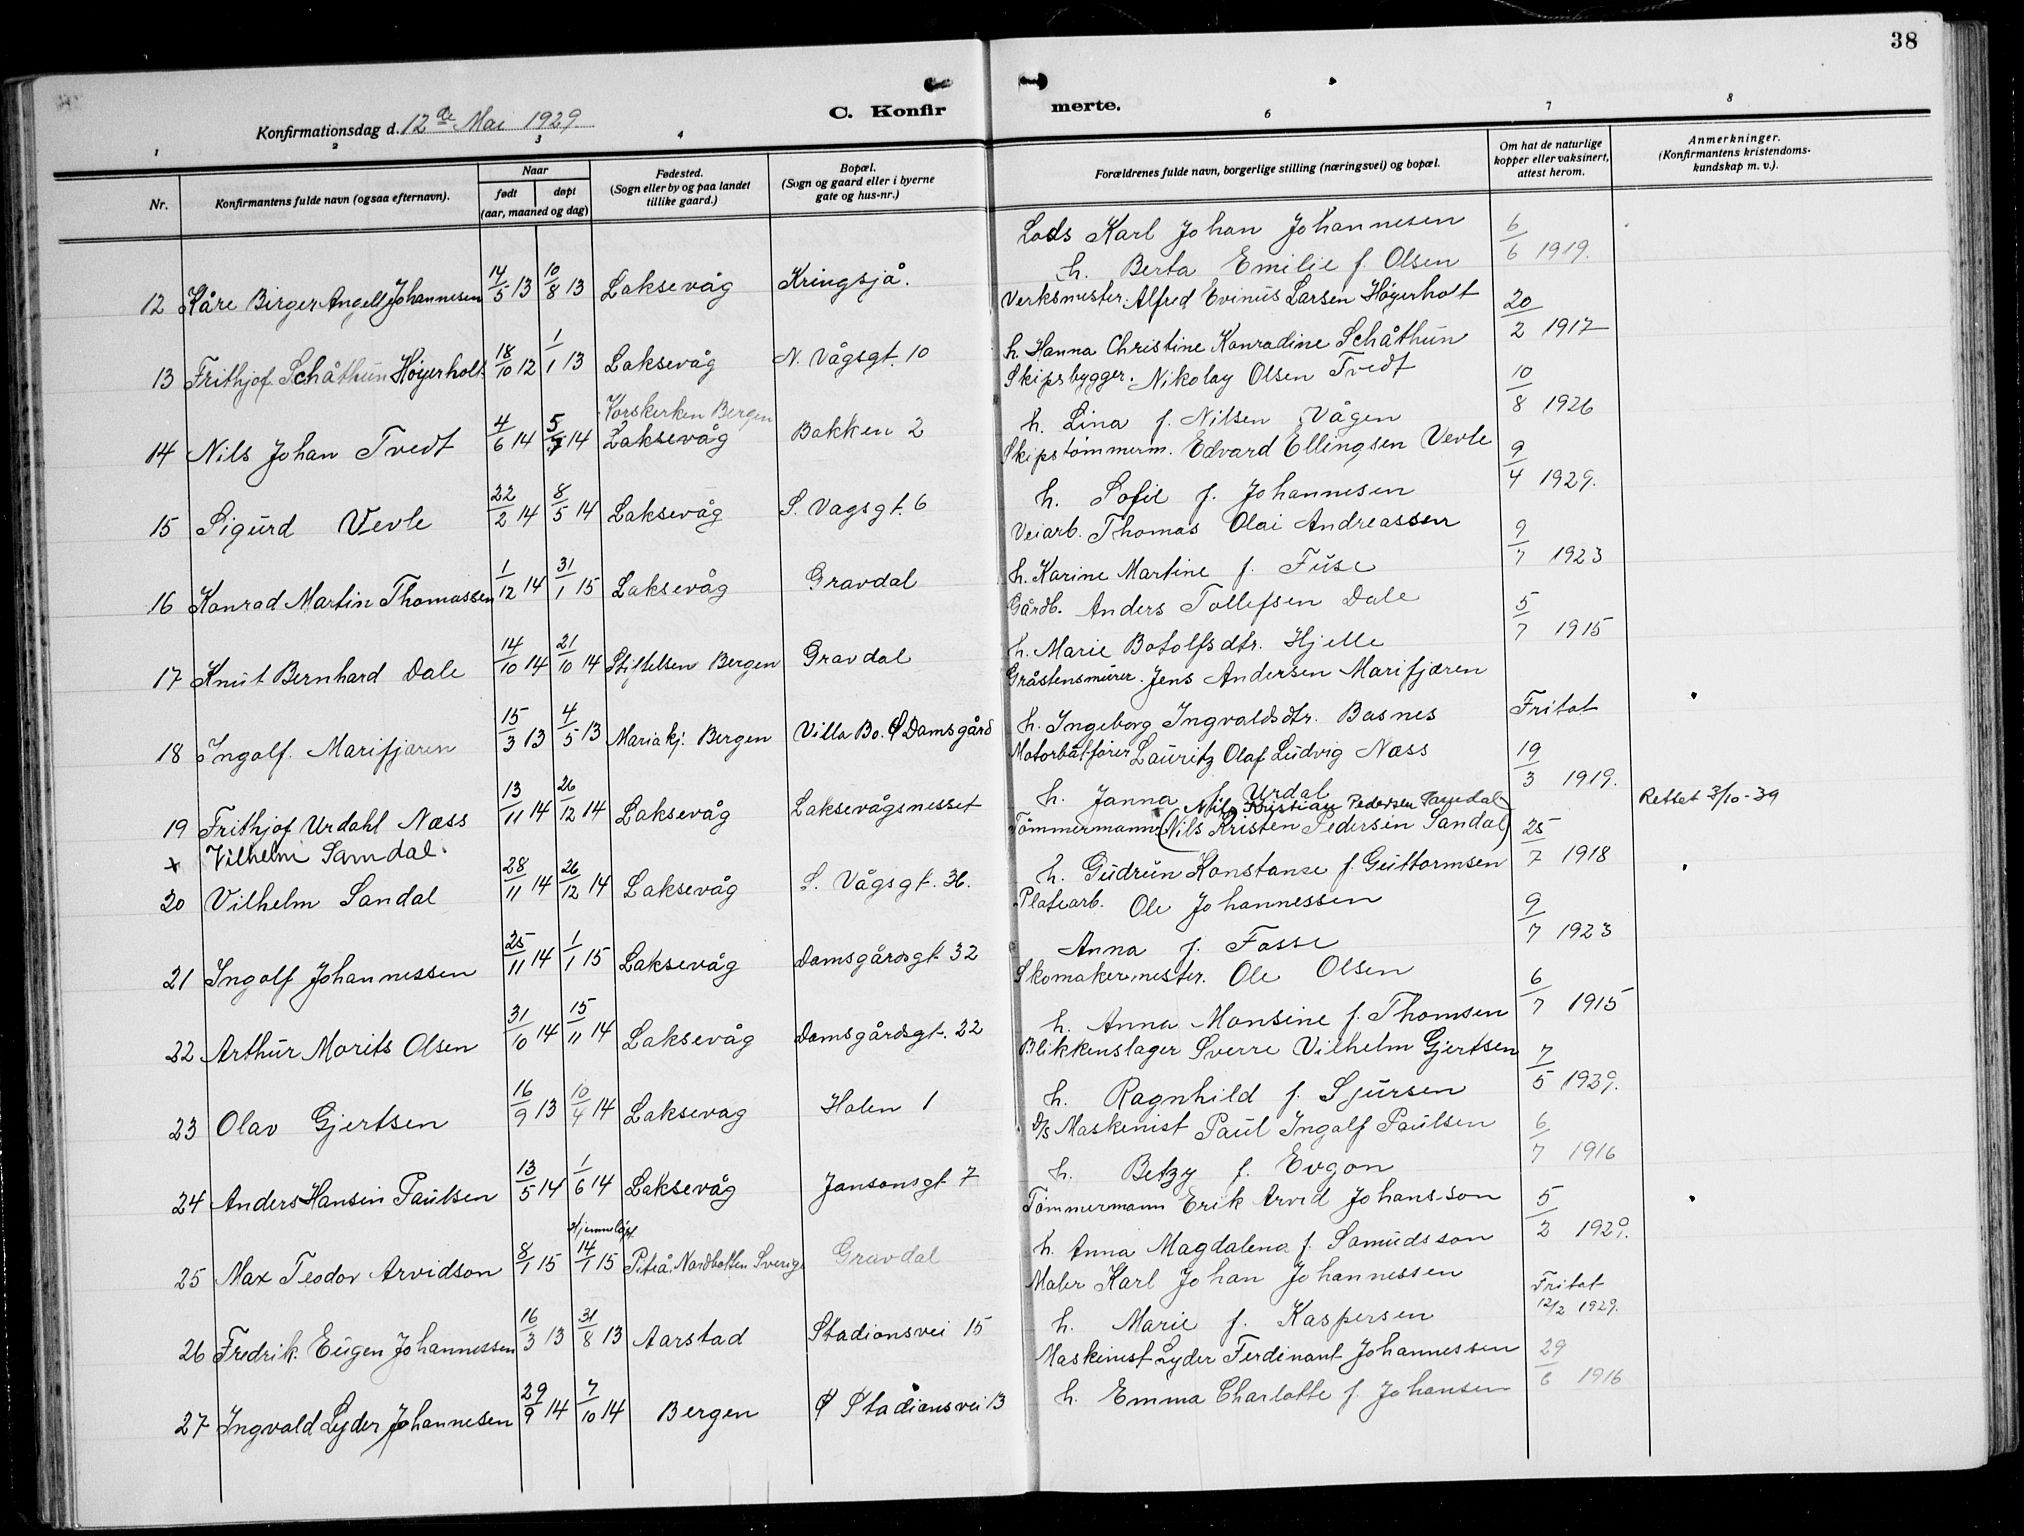 38
Konfirmationsdag d. 12te Mai 1929
C. Konfirmerte.
1 2 3 4 6 7 8
Nr.
Konfirmantens fulde navn (ogsaa efternavn).
Naar
født døpt
(aar, maaned og dag)
Fødested.
(Sogn eller by og paa landet
tillike gaard.)
Bopæl.
(Sogn og gaard eller i byerne
gate og hus-nr.)
Forældrenes fulde navn, borgerlige stilling (næringsvei) og bopæl.
Om hat de naturlige
kopper eller vaksinert,
attest herom.
Anmerkninger.
(Konfirmantens kristendoms-
kundskap m. v.).
Lods Karl Johan Johannesen 6/6 1919.
12 Kåre Birger Angell Johannesen 14/5 13 10/8 13 Laksevåg Kringsjå. h. Berta Emilie f. Olsen
Verksmester. Alfred Evinus Larsen Høyerholt 20/2 1917
13 Frithjof Schåthun Høyerholt 18/10 12 1/1 13 Laksevåg N. Vågsgt. 10 h. Hanna Christine Konradine Schåthun
Skipsbygger. Nikolay Olsen Tvedt 10/8 1926
Korskerken Bergen
14 Nils Johan Tvedt 4/6 14 5/7 14 Laksevåg Bakken 2 h. Lina f. Nilsen Vågen
Skipstømmerm. Edvard Ellingsen Vevle 9/4 1929.
15 Sigurd Vevle 22/2 14 8/5 14 Laksevåg S. Vagsgt. 6 h. Sofie f. Johannesen
Veiarb. Thomas Olai Andreassen 9/7 1923
16 Konrad Martin Thomassen 1/12 14 31/1 15 Laksevåg Gravdal h. Karine Martine f. Fuse
Gårdb. Anders Tollefsen Dale 5/7 1915
17 Knut Bernhard Dale 14/10 14 21/10 14 Stiftelsen Bergen Gravdal h. Marie Botolfsdtr. Hjelle
Gråstensmurer. Jens Andersen Marifjæren
18 Ingolf. Marifjæren 15/3 13 4/5 13 Mariakj. Bergen Villa Bo. Ø Damsgård h. Ingeborg Ingvaldsdtr. Basnes Fritat
Motorbåtfører Lauritz Olaf Ludvig Næss 19/3 1919.
19 Frithjof Urdahl Næss 13/11 14 26/12 14 Laksevåg Laksevågsnesset h. Janna f. Urdal
Nils Kristian Pedersen Samdal Rettet 3/10-39
x Vilhelm Samdal. Tømmermann (Nils Kristen Pedersen Sandal) 25/7 1918
20 Vilhelm Sandal 28/11 14 26/12 14 Laksevåg S. Vågsgt. 36. h. Gudrun Konstanse f. Guttormsen
Platearb. Ole Johannessen 9/7 1923
21 Ingolf Johannessen 25/11 14 1/1 15 Laksevåg Damsgårdsgt. 32 Anna f. Fosse
Skomakermester. Ole Olsen 6/7 1915
22 Arthur Morits Olsen 31/10 14 15/11 14 Laksevåg Damsgårdsgt. 22 h. Anna Monsine f. Thomsen
Blikkenslager Sverre Vilhelm Gjertsen 7/5 1929.
23 Olav Gjertsen 16/9 13 10/4 14 Laksevag Holen 1 h. Ragnhild f. Sjursen
D/s Maskinist Paul Ingolf Paulsen 6/7 1916
24 Anders Hansen Paulsen 13/5 14 1/6 14 Laksevåg Jansonsgt 7 h. Betzy f. Evgon
Tømmermann Erik Arvid Johansson 5/2 1929.
Hjemmedøpt
25 Max Teodor Arvidson 8/1 15 14/1 15 Piteå. Nordbotten Sverige Gravdal h. Anna Magdalena f. Samudsson
Maler Karl Johan Johannessen Fritat
12/2 1929.
26 Fredrik. Eugen Johannessen 16/3 13 31/8 13 Aarstad Stadionsvei 15 h. Marie f. Kaspersen
Maskinist Lyder Ferdinant Johannessen 29/6 1916
27 Ingvald Lyder Johannesen 29/9 14 7/10 14 Bergen Ø Stadionsvei 13 h. Emma Charlotte f. Johansen